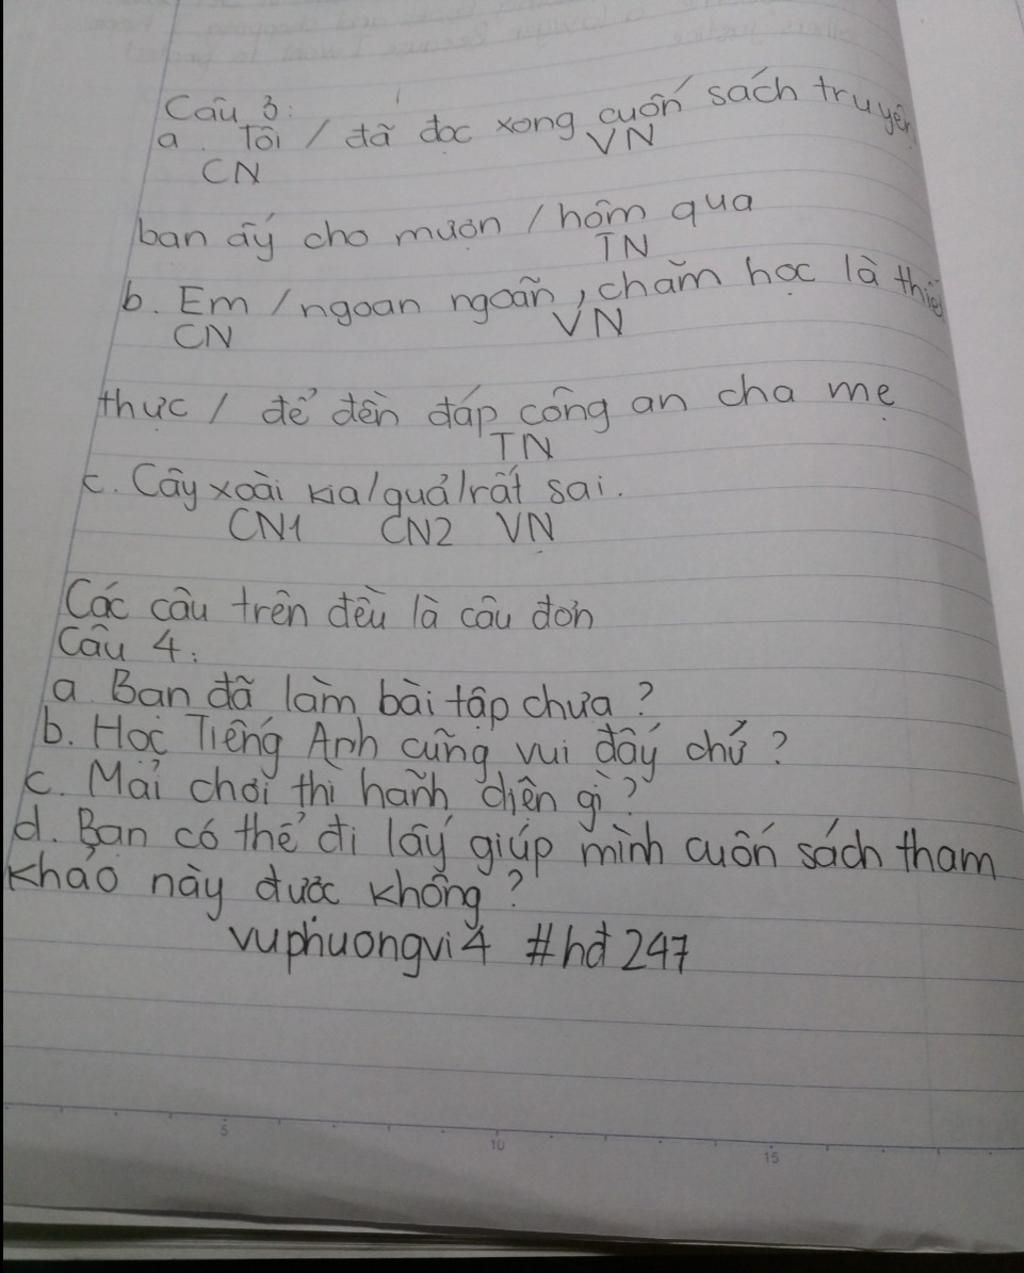 Câu 3:
a. Tôi / đã đọc xong cuốn sách truyện
CN VN
bạn ấy cho mượn / hôm qua
TN
b. Em / ngoan ngoãn, chăm học là thiết
CN VN
thực / để đền đáp công ơn cha mẹ
TN
c. Cây xoài kia/quả/rất sai.
CN1 CN2 VN
Các câu trên đều là câu đơn
Câu 4:
a. Bạn đã làm bài tập chưa?
b. Học Tiếng Anh cũng vui đấy chứ?
c. Mải chơi thì hãnh diện gì?
d. Bạn có thể đi lấy giúp mình cuốn sách tham
khảo này được không?
vuphuongvi4 #hđ247
5 10 15